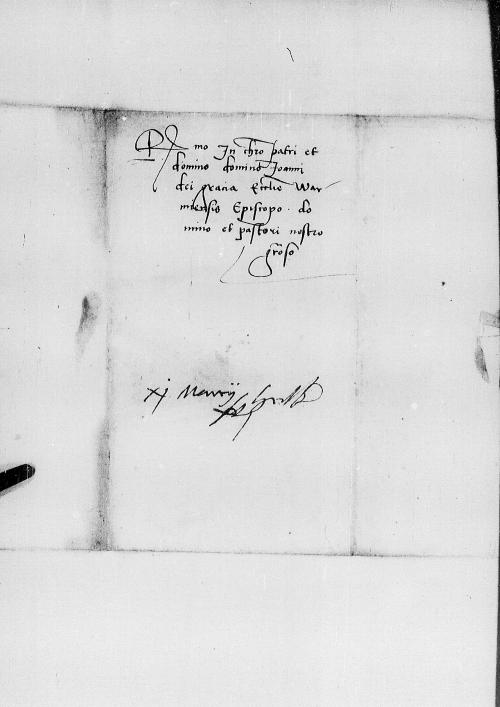 R mo In chro patri et
domino domino Joanni
dei gracia Ecclie War
miensis Episcopo do
mino et pastori nostro
groso
xj Marcij